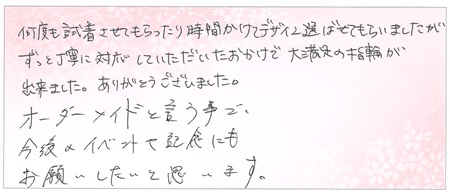 何度も試着させてもらったり時間かけてデザイン選ばせてもらいましたが
ずっと丁寧に対応していただいたおかげで大満足の指輪が
出来ました。ありがとうございました。
オーダーメイドと言う事で、
今後のイベントや記念にも
お願いしたいと思います。